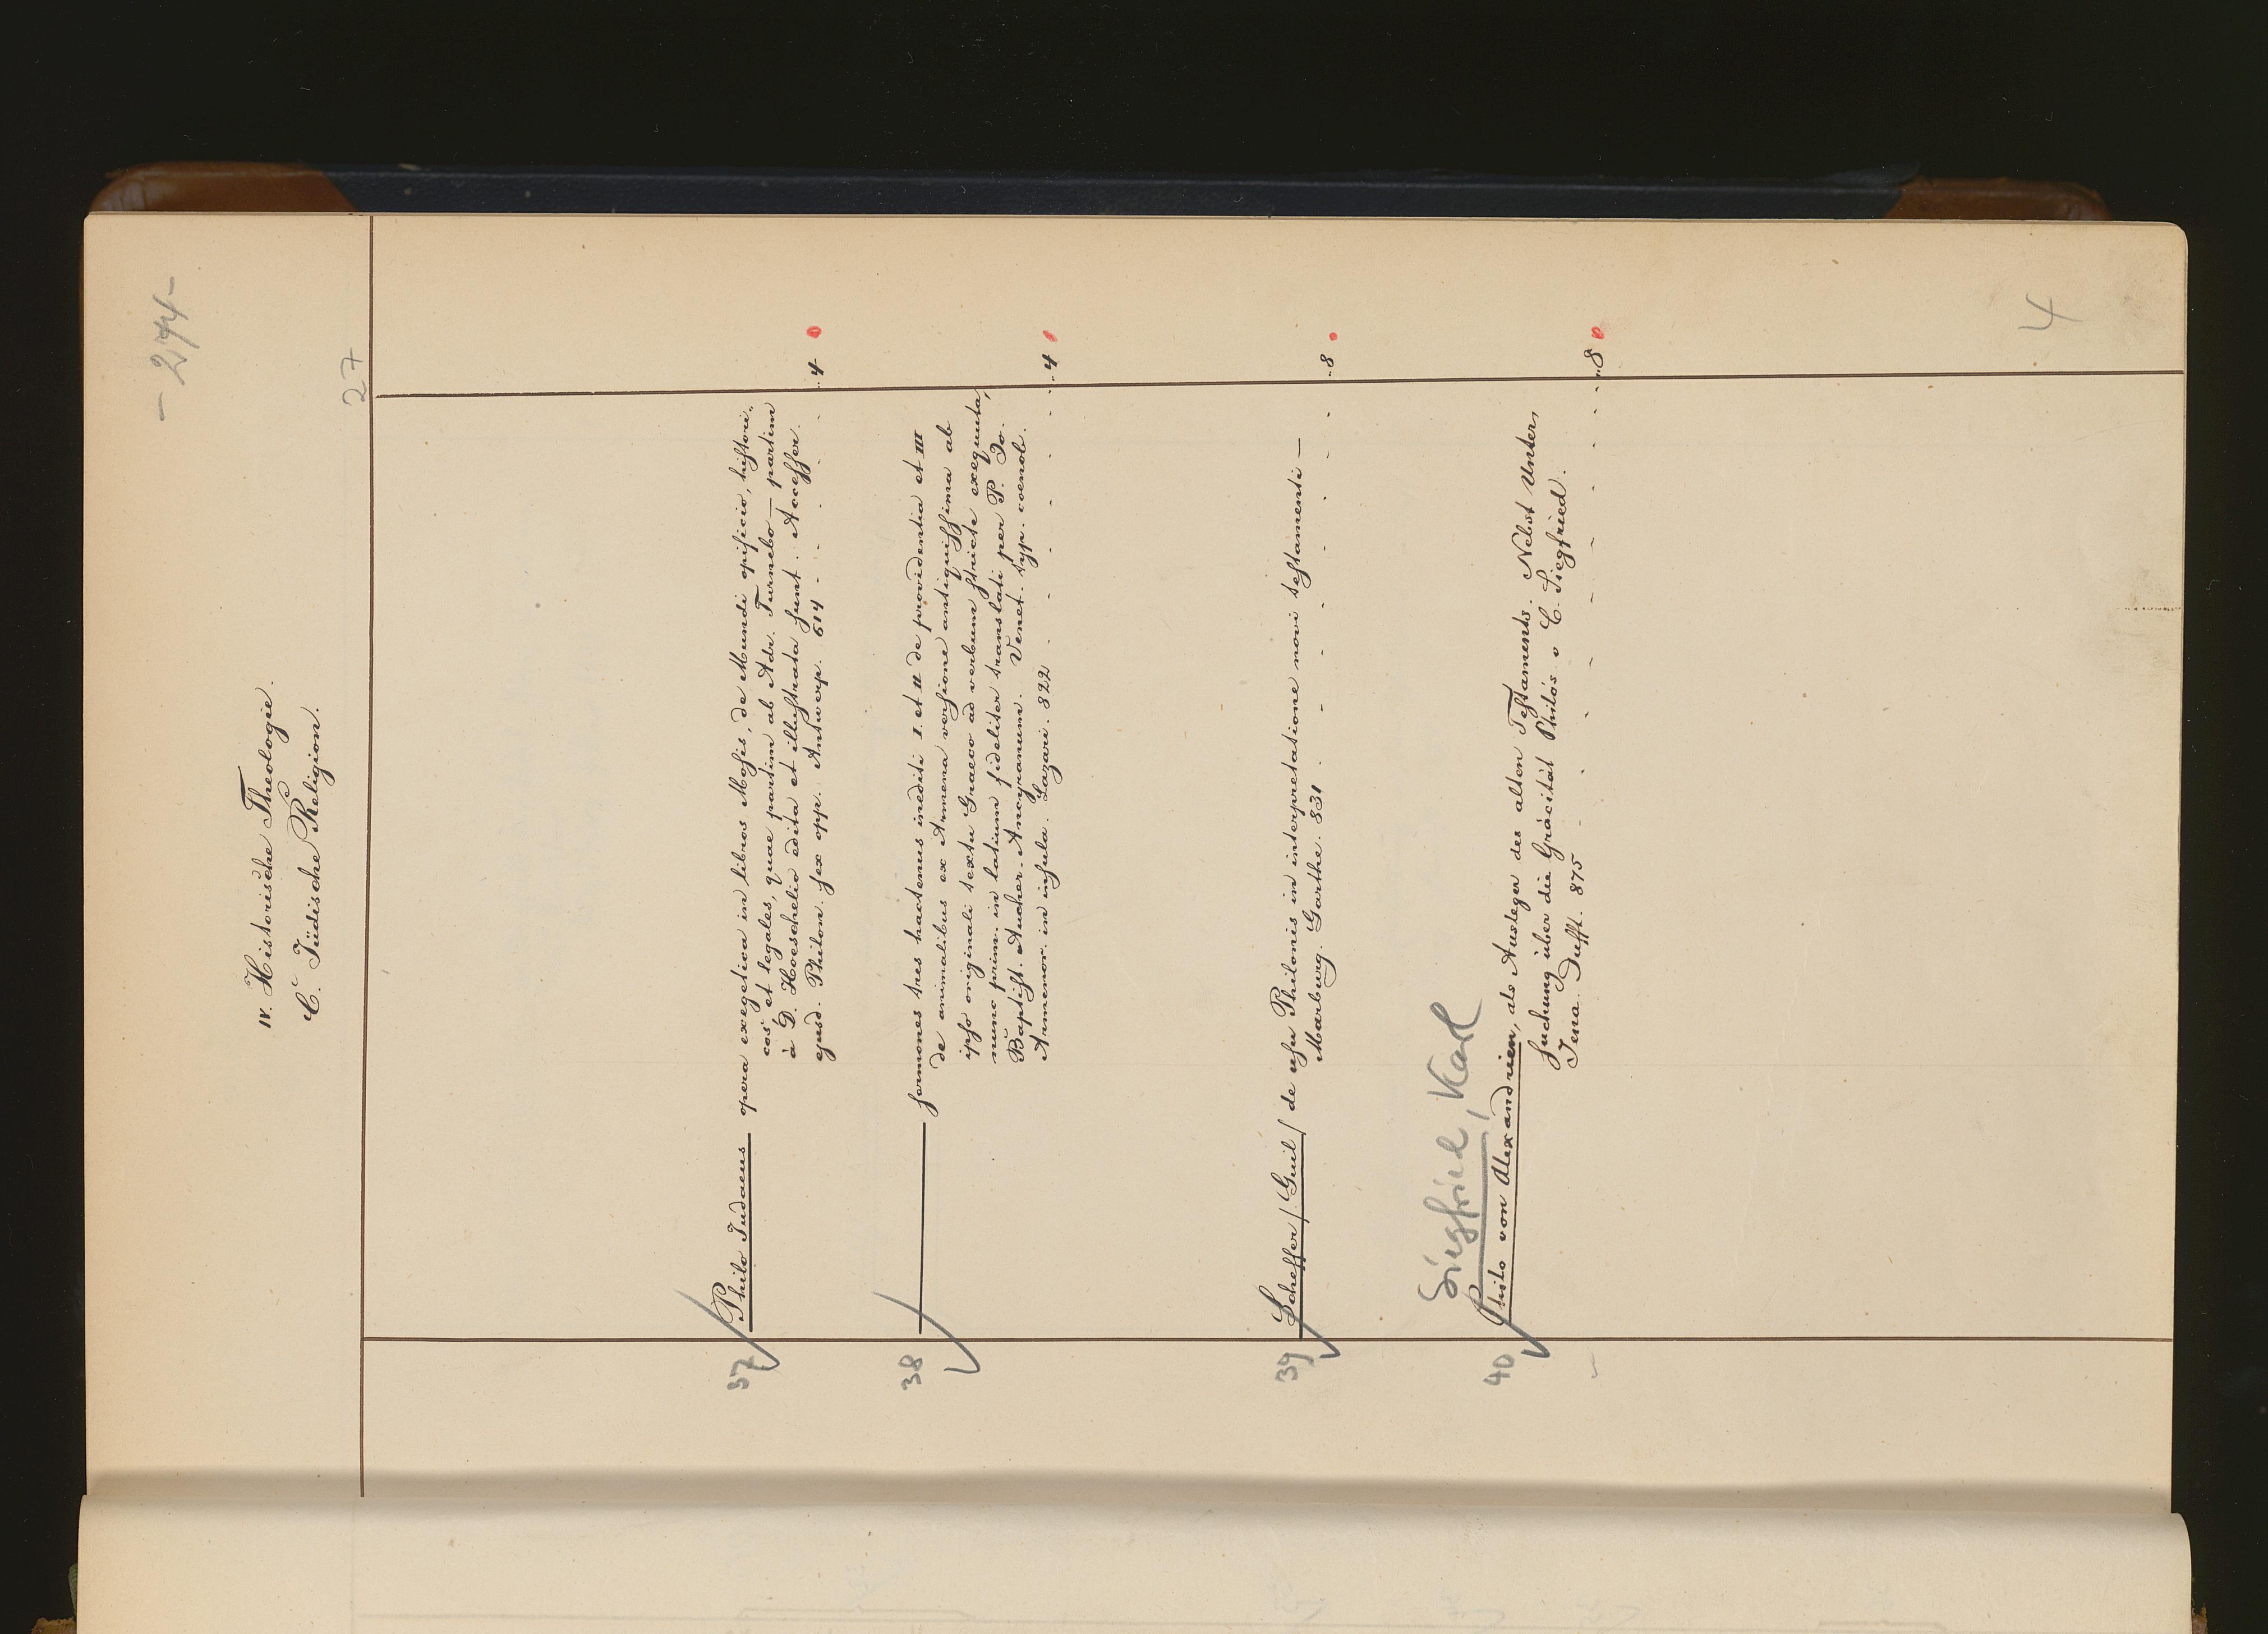 - 274 -
IV. Historische Theologie.
C. Jüdische Religion.
27
37 Philo Judaeus opera exegetica in libros Mosis, de Mundi opificio, histori„
cos et legales, quae partim ab Adr. Turnebo — partim
à D. Hoeschelio edita et illustrata sunt. Accesser.
ejusd. Philon. sex opp. Antwerp. 614 - - - - 4
38 ——— sermones tres hactenus inediti I. et II de providentia et III
de animalibus ex Armena versione antiquissima ab
ipso originali textu Graeco ad verbum stricte exequuta,
nunc prim. in latium fideliter translati per P. Jo.
Baptist. Aucher. Ancyranum. Venet. typ. coenob.
Armenor. in insula. Lazari. 822 - - - - - - 4
39 Scheffer /Guil/ de usu Philonis in interpretatione novi testamenti —
Marburg. Garthe. 831 . - - - - - - 8
Siegfried, Karl
40 Philo von Alexandrien, als Ausleger des alten Testaments. Nebst Unter,
suchung über die Gräcität Philós v C. Siegfried.
Jena. Dufft. 875 - - - - - - - - 8
4